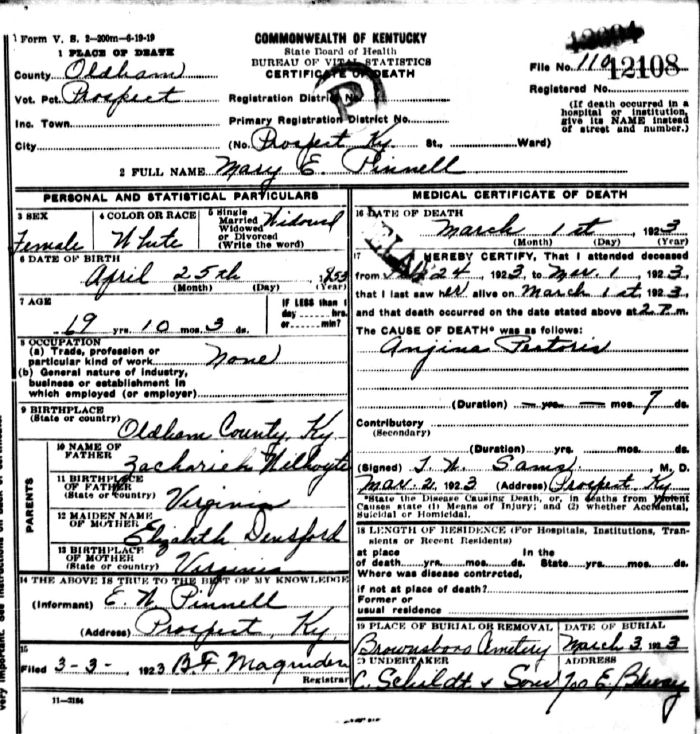 1 Form V. S. 2-200m-6-19-19
COMMONWEALTH OF KENTUCKY
State Board of Health
BUREAU OF VITAL STATISTICS
CERTIFICATE OF DEATH
1 PLACE OF DEATH
County Oldham
Vot. Pct. Prospect
Inc. Town
City
Registration District No.
Primary Registration District No.
(No. Prospect Ky St., Ward)
File No. 110 12108
Registered No.
(If death occurred in a
hospital or institution,
give its NAME instead
of street and number.)
P
2 FULL NAME Mary E. Pinnell
PERSONAL AND STATISTICAL PARTICULARS
3 SEX
Female
4 COLOR OR RACE
White
5 Single
Married
Widowed
or Divorced
(Write the word)
Widowed
6 DATE OF BIRTH
April 25th, 1853
(Month) (Day) (Year)
7 AGE
69 yrs. 10 mos. 3 ds.
IF LESS than 1
day hrs.
or min?
8 OCCUPATION
(a) Trade, profession or
particular kind of work None
(b) General nature of industry,
business or establishment in
which employed (or employer)
9 BIRTHPLACE
(State or country)
Oldham County, Ky.
PARENTS
10 NAME OF
FATHER
Zachariah Wilhoyte
11 BIRTHPLACE
OF FATHER
(State or country)
Virginia
12 MAIDEN NAME
OF MOTHER
Elizabeth Densford
13 BIRTHPLACE
OF MOTHER
(State or country)
Virginia
14 THE ABOVE IS TRUE TO THE BEST OF MY KNOWLEDGE
(Informant) E. W. Pinnell
(Address) Prospect, Ky
15
Filed 3-3-, 1923 B. F. Magruder
Registrar
11-3184
MEDICAL CERTIFICATE OF DEATH
16 DATE OF DEATH
March 1st, 1923
(Month) (Day) (Year)
17
I HEREBY CERTIFY, That I attended deceased
from 24, 1923, to Mar. 1, 1923,
that I last saw her alive on March 1st, 1923,
and that death occurred on the date stated above at 2 P. m.
The CAUSE OF DEATH* was as follows:
Angina Pectoris
(Duration) — yrs. — mos. 7 ds.
Contributory
(Secondary)
(Duration) yrs. mos. ds.
(Signed) T. N. Sams, M. D.
Mar. 2, 1923 (Address) Prospect Ky
*State the Disease Causing Death, or, in deaths from Violent
Causes state (1) Means of Injury; and (2) whether Accidental,
Suicidal or Homicidal.
18 LENGTH OF RESIDENCE (For Hospitals, Institutions, Tran-
sients or Recent Residents)
at place In the
of death yrs. mos. ds. State yrs. mos. ds.
Where was disease contrcted,
if not at place of death?
Former or
usual residence
19 PLACE OF BURIAL OR REMOVAL
Brownsboro Cemetery
DATE OF BURIAL
March 3, 1923
20 UNDERTAKER
C. Schildt & Sons
ADDRESS
E. Bdway